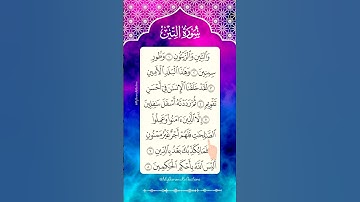 سُورَةُ التِّينِ
وَالتِّينِ وَالزَّيْتُونِ ١ وَطُورِ
سِينِينَ ٢ وَهَٰذَا الْبَلَدِ الْأَمِينِ
٣ لَقَدْ خَلَقْنَا الْإِنسَٰنَ فِي أَحْسَنِ
تَقْوِيمٍ ٤ ثُمَّ رَدَدْنَٰهُ أَسْفَلَ سَٰفِلِينَ
٥ إِلَّا الَّذِينَ ءَامَنُوا وَعَمِلُوا
الصَّٰلِحَٰتِ فَلَهُمْ أَجْرٌ غَيْرُ مَمْنُونٍ
٦ فَمَا يُكَذِّبُكَ بَعْدُ بِالدِّينِ ٧
أَلَيْسَ اللَّهُ بِأَحْكَمِ الْحَٰكِمِينَ ٨